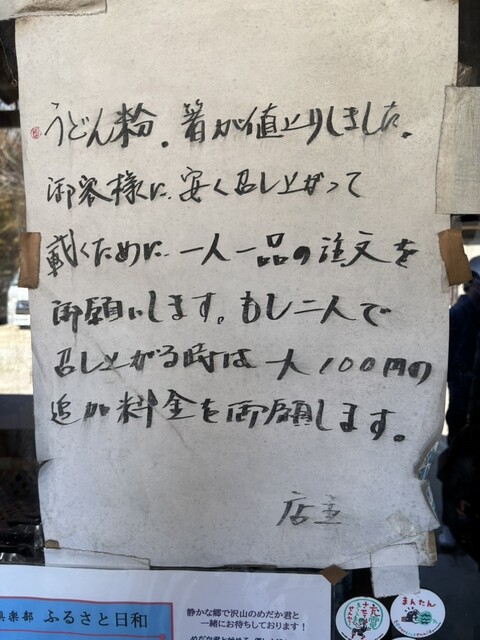 うどん粉。箸が値上りしました。
御客様に安く召し上がって
載くために一人一品の注文を
御願いします。もし二人で
召し上がる時は大100円の
追加料金を御願します。
店主
倶楽部 ふるさと日和
静かな郷で沢山のめだか君と
一緒にお待ちしております！
まんたん